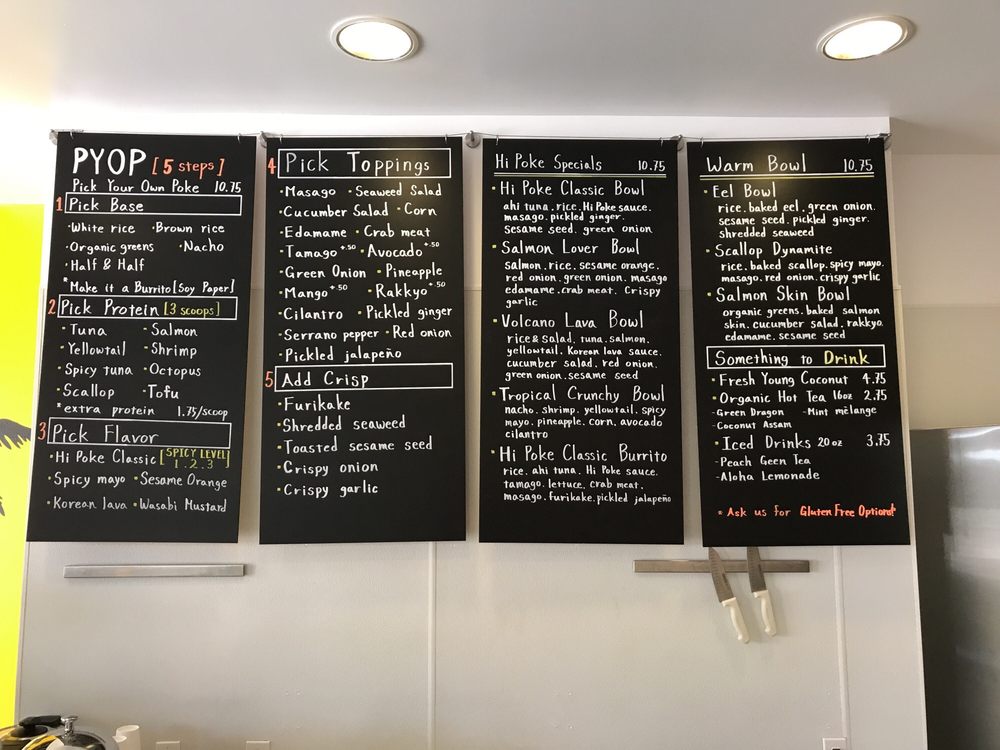 PYOP [5 steps]
Pick Your Own Poke 10.75
1 Pick Base
·White rice ·Brown rice
·Organic greens ·Nacho
·Half & Half
*Make it a Burrito [Soy Paper]
2 Pick Protein [3 scoops]
·Tuna ·Salmon
·Yellowtail ·Shrimp
·Spicy tuna ·Octopus
·Scallop ·Tofu
*extra protein 1.75/scoop
3 Pick Flavor
·Hi Poke Classic [SPICY LEVEL 1.2.3]
·Spicy mayo ·Sesame Orange
·Korean lava ·Wasabi Mustard
4 Pick Toppings
·Masago ·Seaweed Salad
·Cucumber Salad ·Corn
·Edamame ·Crab meat
·Tamago +.50 ·Avocado +.50
·Green Onion ·Pineapple
·Mango +.50 ·Rakkyo +.50
·Cilantro ·Pickled ginger
·Serrano pepper ·Red onion
·Pickled jalapeño
5 Add Crisp
·Furikake
·Shredded seaweed
·Toasted sesame seed
·Crispy onion
·Crispy garlic
Hi Poke Specials 10.75
·Hi Poke Classic Bowl
ahi tuna.rice.Hi Poke sauce.
masago.pickled ginger.
Sesame seed. green onion
·Salmon Lover Bowl
salmon.rice.sesame orange.
red onion.green onion.masago
edamame.crab meat. Crispy
garlic
·Volcano Lava Bowl
rice&salad.tuna.salmon.
yellowtail.Korean lava sauce.
cucumber salad.red onion.
green onion.sesame seed
·Tropical Crunchy Bowl
nacho.shrimp.yellowtail.spicy
mayo.pineapple.corn.avocado
cilantro
·Hi Poke Classic Burrito
rice.ahi tuna.Hi Poke sauce.
tamago.lettuce.crab meat.
masago.furikake.pickled jalapeño
Warm Bowl 10.75
·Eel Bowl
rice.baked eel.green onion.
sesame seed.pickled ginger.
shredded seaweed
·Scallop Dynamite
rice.baked scallop.spicy mayo.
masago.red onion.crispy garlic
·Salmon Skin Bowl
organic greens.baked salmon
skin.cucumber salad.rakkyo.
edamame.sesame seed
Something to Drink
·Fresh Young Coconut 4.75
·Organic Hot Tea 16oz 2.75
-Green Dragon -Mint mèlange
-Coconut Assam
·Iced Drinks 20oz 3.75
-Peach Geen Tea
-Aloha Lemonade
*Ask us for Gluten Free Options!